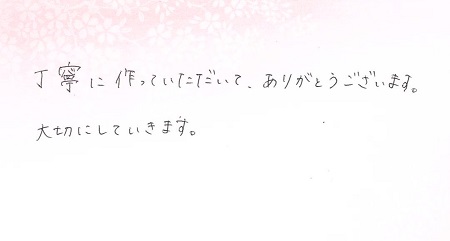 丁寧に作っていただいて、ありがとうございます。
大切にしていきます。